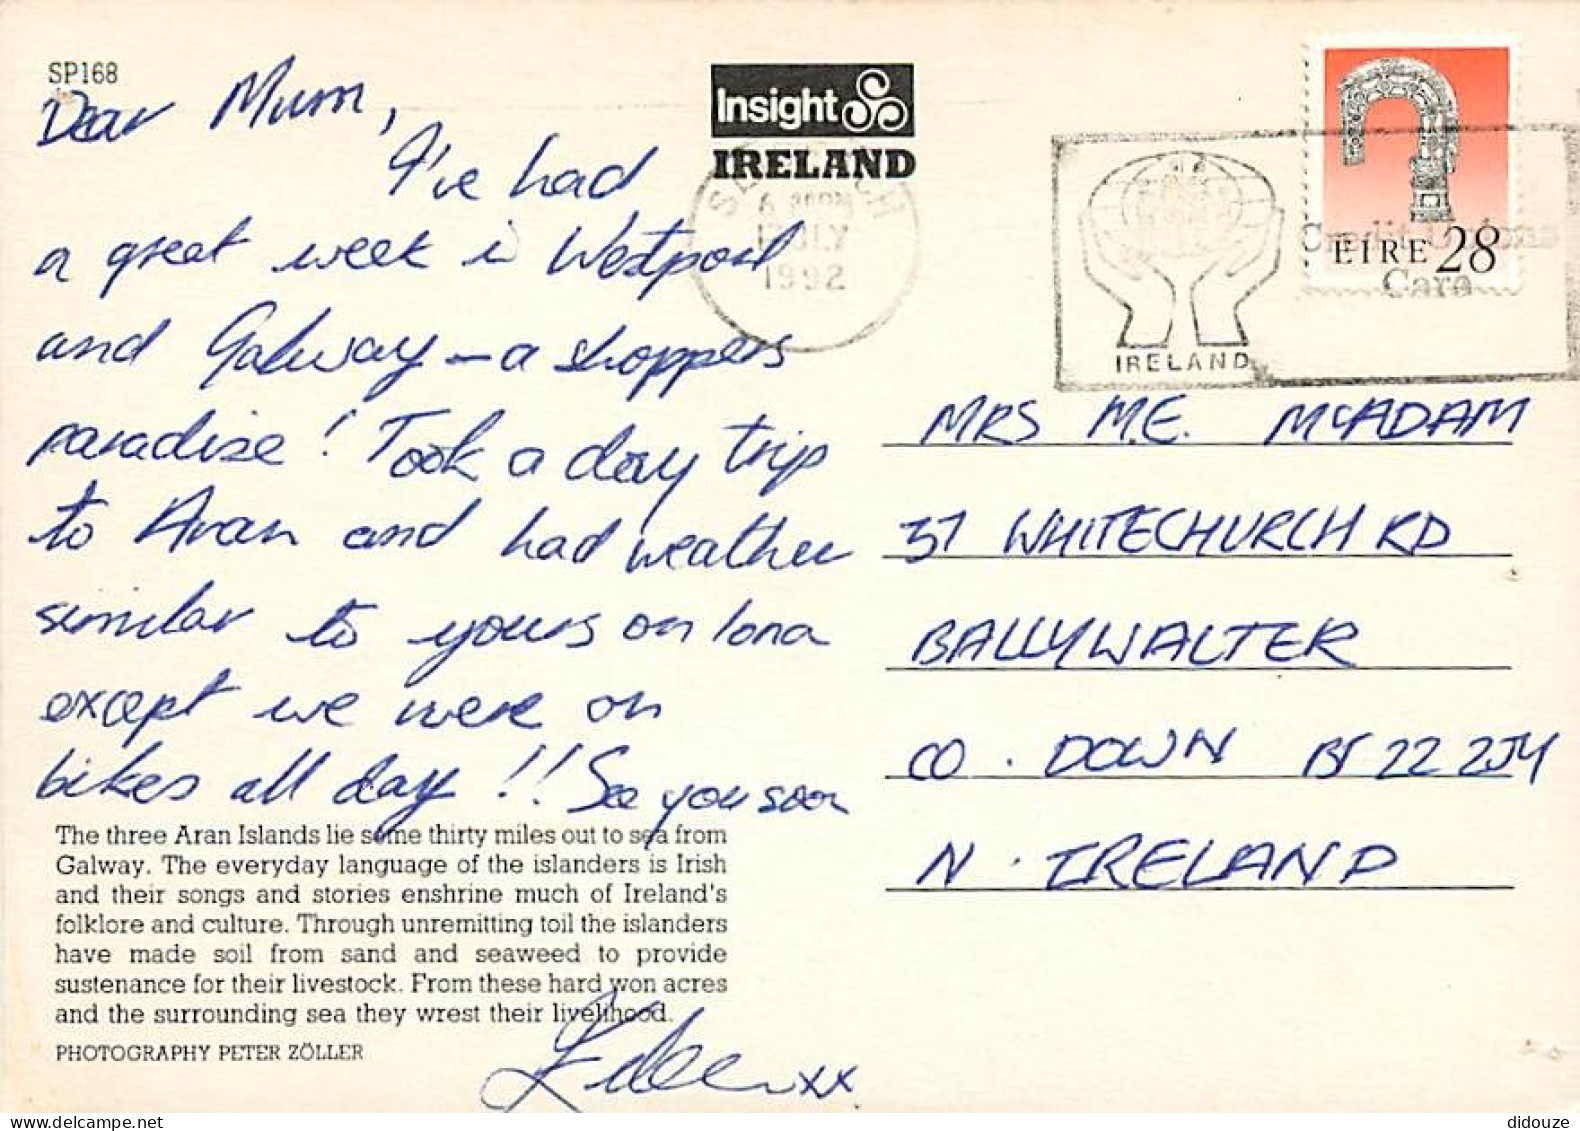 SP168
Dear Mum,
I've had
a great week in Westport
and Galway – a shoppers
paradise! Took a day trip
to Aran and had weather
similar to yours on Iona
except we were on
bikes all day!! See you soon
The three Aran Islands lie some thirty miles out to sea from
Galway. The everyday language of the islanders is Irish
and their songs and stories enshrine much of Ireland's
folklore and culture. Through unremitting toil the islanders
have made soil from sand and seaweed to provide
sustenance for their livestock. From these hard won acres
and the surrounding sea they wrest their livelihood.
PHOTOGRAPHY PETER ZÖLLER
xx
Insight
IRELAND
1992
IRELAND
Care
EIRE 28
MRS M.E. McADAM
37 WHITECHURCH RD
BALLYWALTER
CO. DOWN BT22 2JY
N. IRELAND
didouze